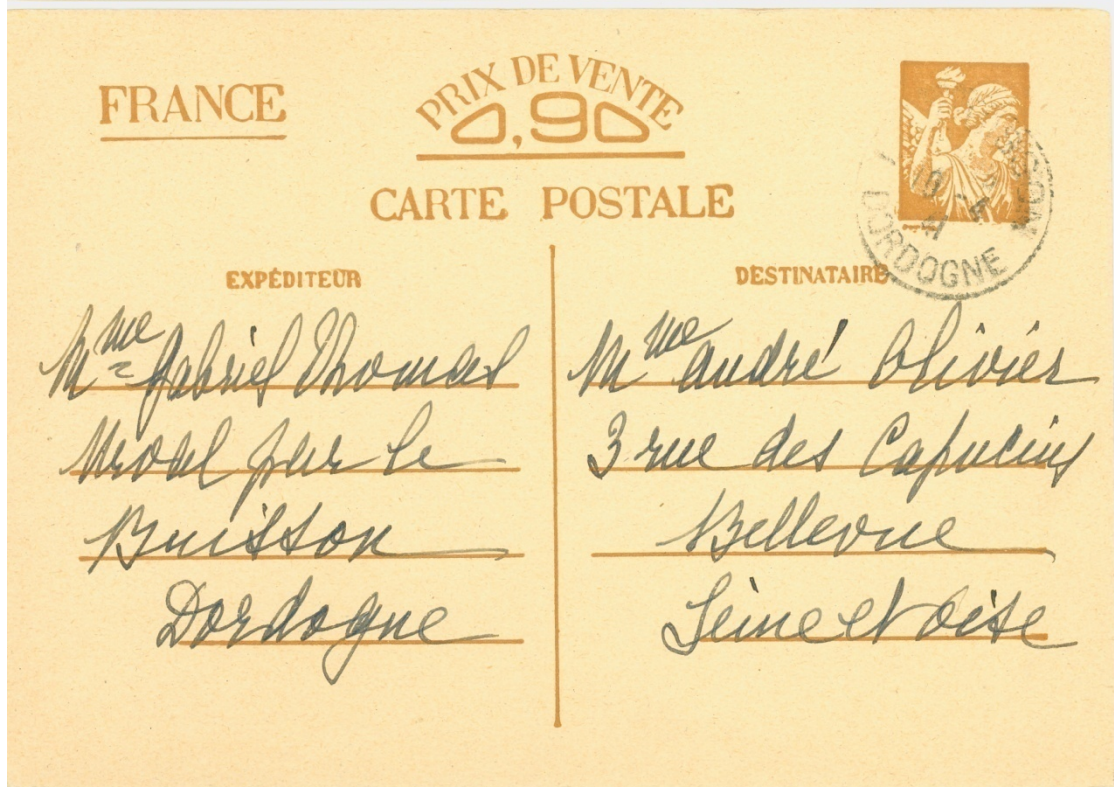 FRANCE
PRIX DE VENTE
0,90
CARTE POSTALE
EXPÉDITEUR
Mme Gabriel Thomas
Urval par le
Buisson
Dordogne
DESTINATAIRE
Mme André Olivier
3 rue des Capucins
Bellevue
Seine et Oise
10
41
DORDOGNE